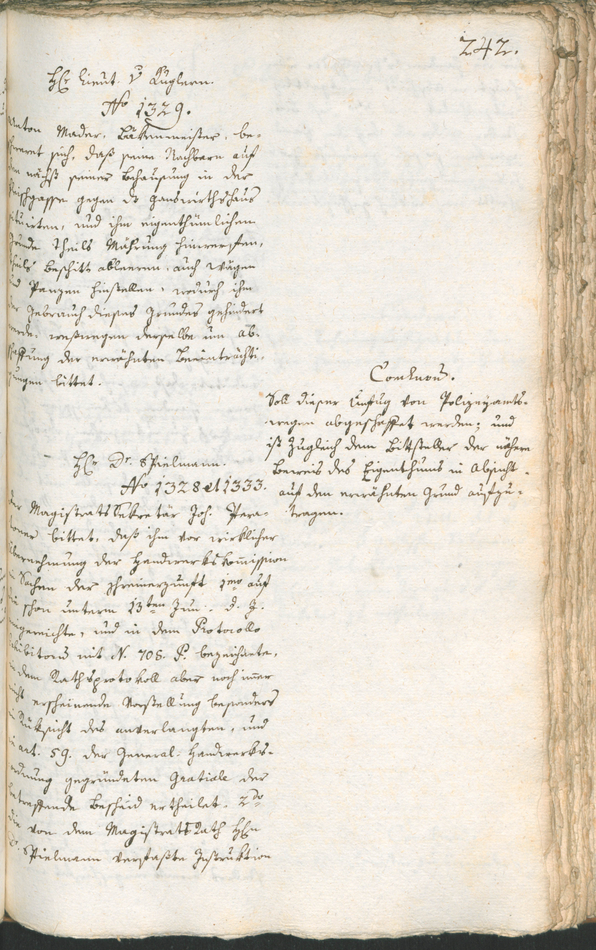 242.
H. Lieut. v. Kuglern.
No 1329.
Anton Mader, Bäkenmeister, be-
schweret sich, daß seine Nachbarn auf
den nächst seiner Behausung in der
Fleischgasse gegen das Ganswirthshaus
situirten, und ihm eigenthümlichen
Grunde theils hinwerffen,
theils Beschitt ableeren, auch Wägen
und Panzen hinstellen, wodurch ihm
der Gebrauch dieses Grundes gehindert
werde, weßwegen derselbe um Ab-
schaffung der erwähnten Beeinträchti-
gungen bittet.
Conclusum.
Soll dieser Unfug von Polizeyamts-
wegen abgeschaffet werden; und
ist zugleich dem Bittsteller der nähere
Beweis des Eigenthums in Absicht
auf den erwähnten Grund aufzu-
tragen.
H. Dr. Spielmann.
No 1328 et 1333.
Der Magistrats Sekretär Joh.
bittet, daß ihm vor wirklicher
Übernehmung der Handwerkskommission
in Sachen der 1mo auf
die schon unterm 13ten Jun. d. J.
eingereichte, und in dem Protocollo
Exhibitorum mit N. 705. P. bezeichnete,
in dem Rathsprotokoll aber noch immer
nicht erscheinende Vorstellung besonders
in Rüksicht des anverlangten, und
in art. 59. der General-Handwerks-
ordnung gegründeten Gratiale der
betreffende Bescheid ertheilet. 2do
die von dem Magistrats Rath H.
Dr. Spielmann verfaßte Instruktion